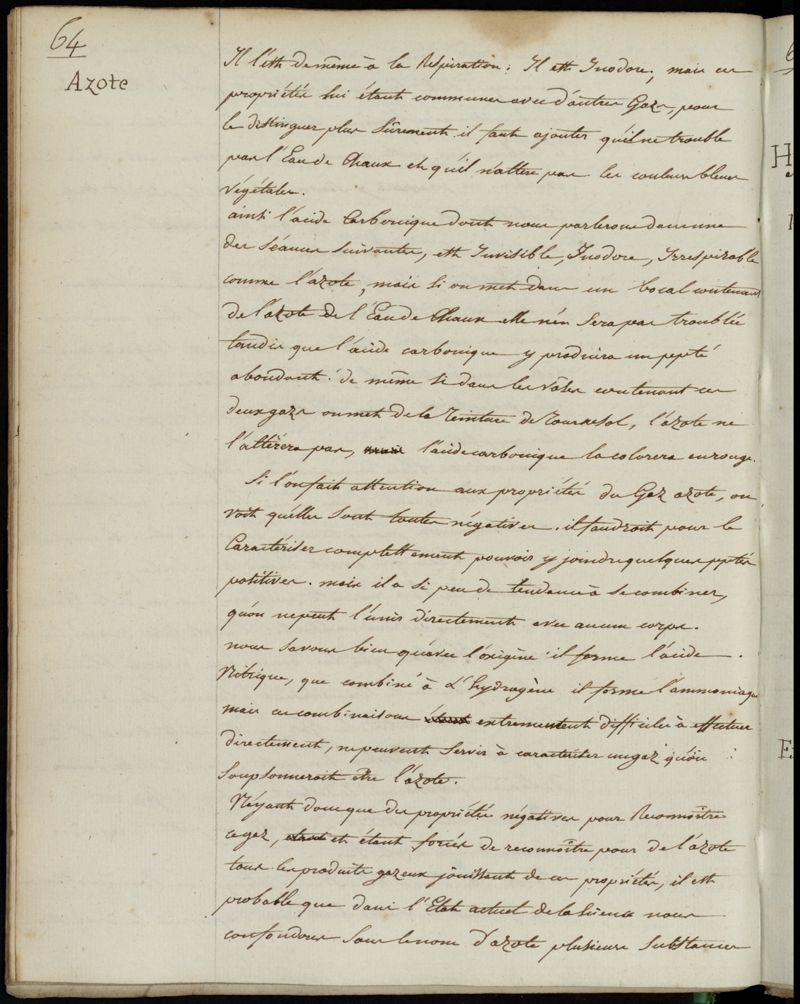 64
Azote
Il l'est de même à la Respiration : Il est Inodore, mais ces
propriétés lui étant communes avec d'autres Gaz, pour
le distinguer plus Sûrement il faut ajouter qu'il ne trouble
pas l'Eau de Chaux et qu'il n'altère pas les couleurs bleues
végétales.
ainsi l'acide Carbonique dont nous parlerons dans une
des Séances Suivantes, est Invisible, Inodore, Irrespirable
comme l'azote, mais Si on met dans un bocal contenant
de l'azote de l'Eau de Chaux elle n'en Sera pas troublée
tandis que l'acide carbonique y produira un ppté
abondant. de même Si dans les vases contenant ces
deux gazs on met de la Teinture de Tournesol, l'azote ne
l'altèrera pas, l'acide carbonique la colorera en rouge.
Si l'on fait attention aux propriétés du Gaz azote, on
voit qu'elles Sont toutes négatives. il faudroit pour le
Caractériser complettement pouvoir y joindre quelques pptés
positives. mais il a Si peu de tendance à Se combiner,
qu'on ne peut l'unir directement avec aucun corps.
nous Savons bien qu'avec l'oxigène il forme l'acide
Nitrique, que combiné à L'hydrogène il forme l'ammoniaque
mais ces combinaisons extremement difficiles à effectuer
directement, ne peuvent Servir à caracteriser un gaz qu'on
Soupsonneroit être l'azote.
N'ayant donc que des propriétés négatives pour Reconnoître
ce gaz, et étant forcés de reconnoître pour de l'azote
tous les produits gazeux jouissant de ces propriétés, il est
probable que dans l'Etat actuel de la Science nous
confondons Sous le nom D'azote plusieurs Substances
H